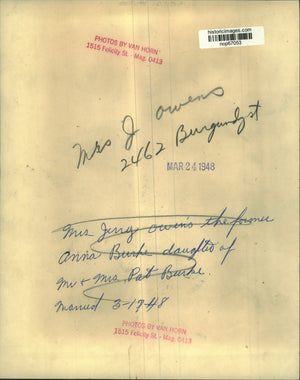 historicimages.com
nop67053
PHOTOS BY VAN HORN
1515 Felicity St. - Mag. 0413
Mrs J Owens
2462 Burgundy st
MAR 24 1948
Mrs. Jerry Owens the former
Anna Burke daughter of
Mr & Mrs. Pat Burke.
Married 3-1-48
PHOTOS BY VAN HORN
1515 Felicity St. - Mag. 0413